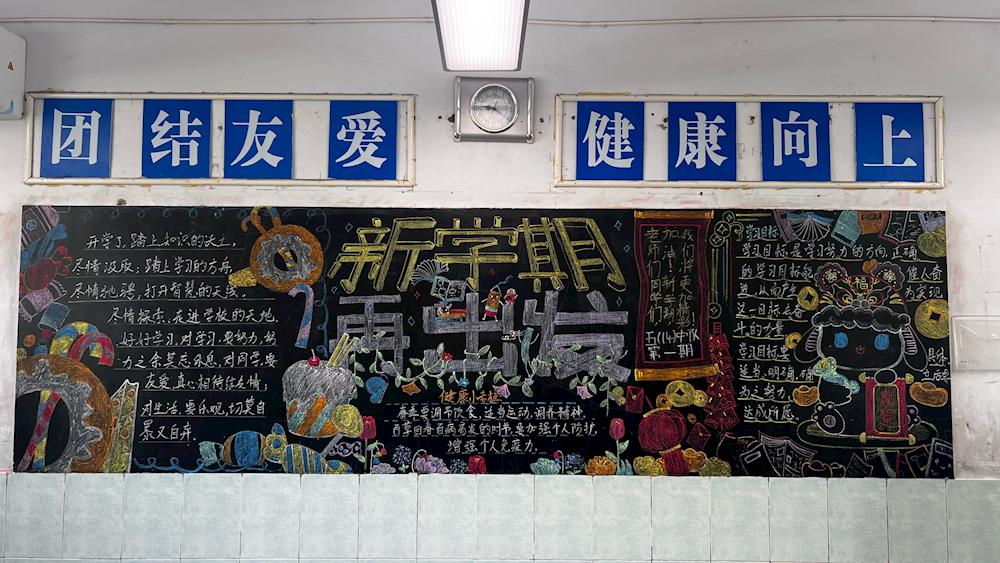 团结友爱
健康向上
开学了,踏上知识的沃土,
尽情汲取;踏上学习的方舟
尽情驰骋,打开智慧的天线,
尽情探索,走进学校的天地,
好好学习,对学习要努力,努
力之余莫忘休息,对同学要
友爱,真心相待结友情;
对生活,要乐观,切莫自
暴又自弃.
新学期
再出发
健康小卡片
春季要调节饮食,适当运动,调养精神,
百草回春百病易发的时节,要加强个人防护,
增强个人免疫力.
老师们同学们
加油!新学期
们将更加精彩
五(14)中队
第一期
学习目标
学习目标是学习努力的方向,正确
的学习目标能催人奋
进,从而产生为实现
这一目标去奋
斗的力量
学习目标要具体
适当、明确,
为之努力,
达成所愿
福